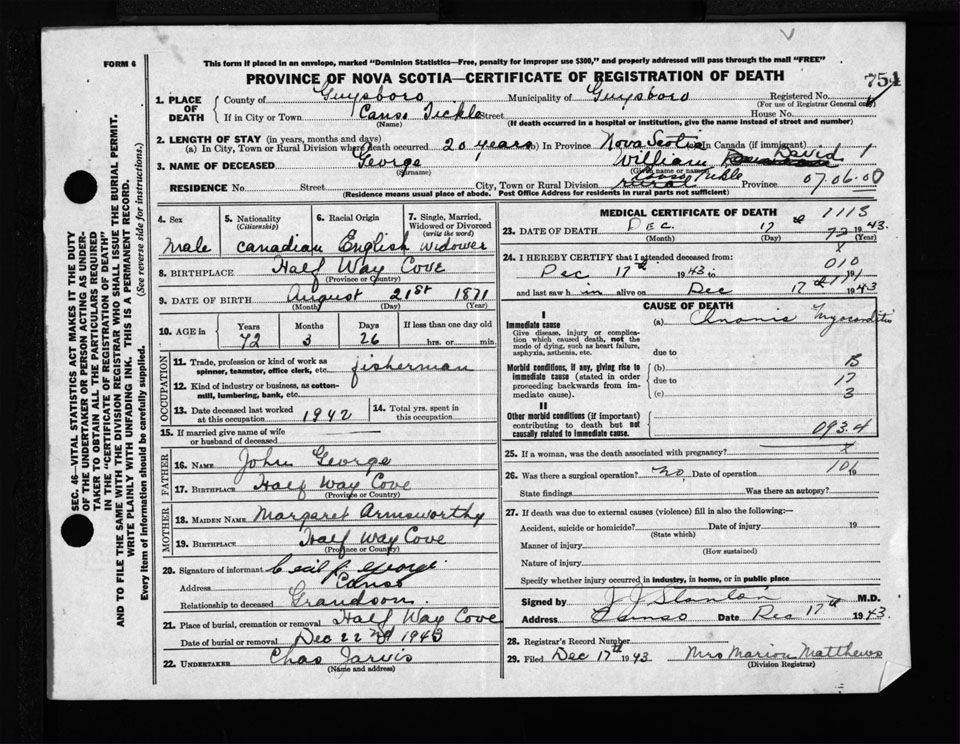 FORM 6
This form if placed in an envelope, marked "Dominion Statistics—Free, penalty for improper use $300," and properly addressed will pass through the mail "FREE"
PROVINCE OF NOVA SCOTIA—CERTIFICATE OF REGISTRATION OF DEATH 754
1. PLACE OF DEATH County of Guysboro Municipality of Guysboro Registered No.
(For use of Registrar General only)
If in City or Town Canso Tickle Street House No.
(Name) (If death occurred in a hospital or institution, give the name instead of street and number)
2. LENGTH OF STAY (in years, months and days)
(a) In City, Town or Rural Division where death occurred 20 years (b) In Province Nova Scotia (c) In Canada (if immigrant)
3. NAME OF DECEASED George William David 1
(Surname) (Given name or names)
RESIDENCE No. Street City, Town or Rural Division Canso Tickle rural Province 07.06.00
(Residence means usual place of abode. Post Office Address for residents in rural parts not sufficient)
4. Sex Male
5. Nationality (Citizenship) Canadian
6. Racial Origin English
7. Single, Married, Widowed or Divorced (write the word) Widower
8. BIRTHPLACE Half Way Cove
(Province or Country)
9. DATE OF BIRTH August 21st 1871
(Month) (Day) (Year)
10. AGE in Years Months Days If less than one day old
72 3 26 hrs. or min.
OCCUPATION
11. Trade, profession or kind of work as spinner, teamster, office clerk, etc. fisherman
12. Kind of industry or business, as cotton-mill, lumbering, bank, etc.
13. Date deceased last worked at this occupation 1942
14. Total yrs. spent in this occupation
15. If married give name of wife or husband of deceased
FATHER
16. NAME John George
17. BIRTHPLACE Half Way Cove
(Province or Country)
MOTHER
18. MAIDEN NAME Margaret Armsworthy
19. BIRTHPLACE Half Way Cove
(Province or Country)
20. Signature of informant Cecil R. George
Address Canso
Relationship to deceased Grandson.
21. Place of burial, cremation or removal Half Way Cove
Date of burial or removal Dec 22nd 1943
22. UNDERTAKER Chas Jarvis
(Name and address)
MEDICAL CERTIFICATE OF DEATH 1113
23. DATE OF DEATH Dec. 17 1943
(Month) (Day) (Year)
24. I HEREBY CERTIFY that I attended deceased from: 010
Dec 17th 1943
and last saw h im alive on Dec 17th 1943
CAUSE OF DEATH
I
Immediate cause (a) Chronic Myocarditis
Give disease, injury or complication which caused death, not the mode of dying, such as heart failure, asphyxia, asthenia, etc.
due to
Morbid conditions, if any, giving rise to immediate cause (stated in order proceeding backwards from immediate cause).
(b) B
due to 17
(c) 3
II
Other morbid conditions (if important) contributing to death but not causally related to immediate cause.
093.4
25. If a woman, was the death associated with pregnancy? X
26. Was there a surgical operation? no. Date of operation 19
State findings Was there an autopsy?
27. If death was due to external causes (violence) fill in also the following:—
Accident, suicide or homicide? Date of injury 19
(State which)
Manner of injury
(How sustained)
Nature of injury
Specify whether injury occurred in industry, in home, or in public place
Signed by J J Stanton M.D.
Address Canso Date Dec 17th 1943
28. Registrar's Record Number
29. Filed Dec 17th 1943 Mrs Marion Matthews
(Division Registrar)
SEC. 46—VITAL STATISTICS ACT MAKES IT THE DUTY
OF THE UNDERTAKER OR PERSON ACTING AS UNDER-
TAKER TO OBTAIN ALL THE PARTICULARS REQUIRED
IN THE "CERTIFICATE OF REGISTRATION OF DEATH"
AND TO FILE THE SAME WITH THE DIVISION REGISTRAR WHO SHALL ISSUE THE BURIAL PERMIT.
WRITE PLAINLY WITH UNFADING INK. THIS IS A PERMANENT RECORD.
Every item of information should be carefully supplied. (See reverse side for instructions.)